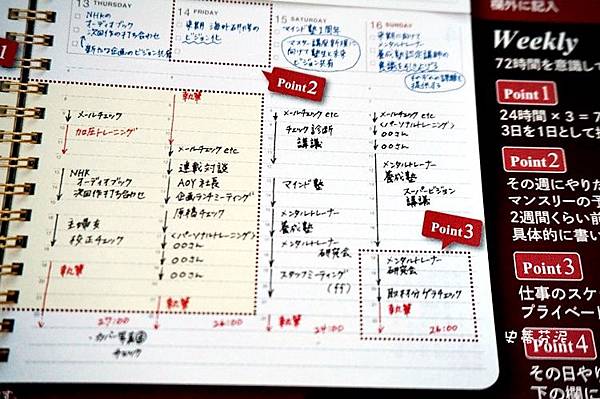 13 THURSDAY
NHKの
オーディオブック
次回作の打ち合わせ
新たな企画のビジョン共有
14 FRIDAY
15 SATURDAY
マインド塾1周年
マスター講座新規に
向けて塾生と未来
ビジョン共有
16 SUNDAY
来期に向けて
メンタルトレーナー
養成塾認定講師の
意識を引き上げる
それぞれの課題を
提供する
欄外に記入
1
Point 2
メールチェック
加圧トレーニング
NHK
オーディオブック
次回作打ち合わせ
主婦友
校正チェック
執筆
27:00
カバー写真
チェック
執筆
メールチェック etc
連載対談
AOY社長
企画ランチミーティング
原稿チェック
<パーソナルトレーニング>
○○さん
○○さん
○○さん
執筆
26:00
メールチェック etc
チェック診断
講議
マインド塾
メンタルトレーナー
養成塾
メンタルトレーナー
研究会
スタッフミーティング
24:00
メールチェック etc
<パーソナルトレーニング>
○○さん
○○さん
メンタルトレーナー
養成塾
スーパービジョン
講議
Point 3
メンタルトレーナー
研究会
取材分ゲラチェック
執筆
26:00
Weekly
72時間を意識して
Point 1
24時間 × 3 = 7
3日を1日として
Point 2
その週にやりた
マンスリーの予
2週間くらい前
具体的に書い
Point 3
仕事のスケ
プライベート
史蒂芬泥
Point 4
その日やり
下の欄に